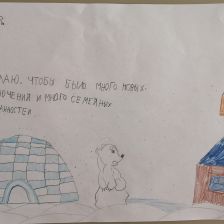 ЛАЮ, ЧТОБЫ БЫЛО МНОГО НОВЫХ
ЮЧЕНИЙ И МНОГО СЕМЕЙНЫХ